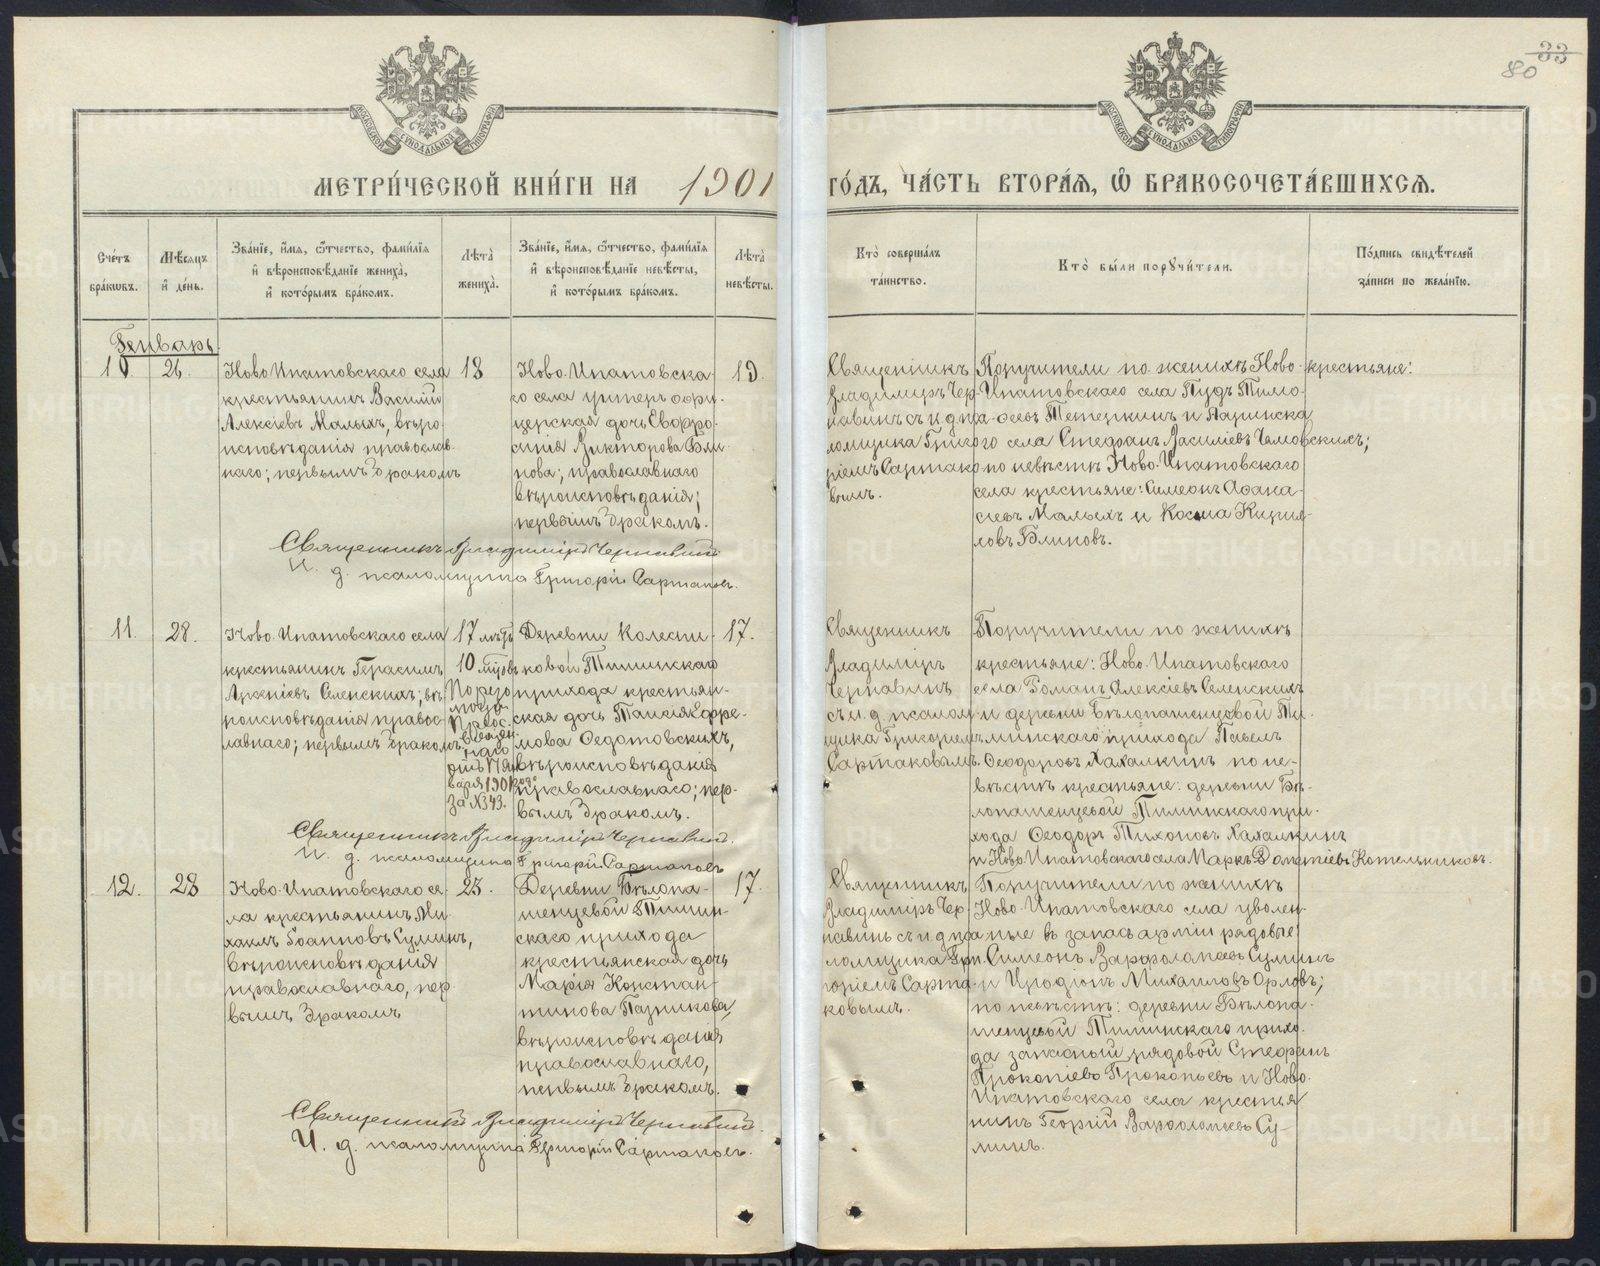 33
80
МОСКОВСКОЙ СѴНОДАЛЬНОЙ ТИПОГРАФІИ
МОСКОВСКОЙ СѴНОДАЛЬНОЙ ТИПОГРАФІИ
МЕТРИ́ЧЕСКОЙ КНИ́ГИ НА 1901 ГО́ДЪ, ЧА́СТЬ ВТОРА́Ѧ, Ѽ БРАКОСОЧЕТА́ВШИХСѦ.
Сче́тъ
бра́кѡвъ.
Мѣ́сяцъ
и҆ де́нь.
Зва́нїе, и҆́мѧ, ѻ҆́тчество, фами́лїѧ
и҆ вѣроисповѣ́данїе жениха̀,
и҆ кото́рымъ бра́комъ.
Лѣта̀
жениха̀.
Зва́нїе, и҆́мѧ, ѻ҆́тчество, фами́лїѧ
и҆ вѣроисповѣ́данїе невѣ́сты,
и҆ кото́рымъ бра́комъ.
Лѣта̀
невѣ́сты.
Кто̀ соверша́лъ
та́инство.
Кто̀ бы́ли порꙋчи́тели.
По́дпись свидѣ́телей
за́писи по жела́нїю.
Генварь.
10
26.
Ново-Ипатовскаго села
крестьянинъ Василій
Алексіевъ Малыхъ, вѣро-
исповѣданія православ-
наго; первымъ бракомъ
18
Ново-Ипатовска-
го села унтеръ офи-
церская дочь Евфро-
синія Викторова Бли-
нова; православнаго
вѣроисповѣданія;
первымъ бракомъ.
19.
Священникъ
Владиміръ Чер-
навинъ съ и д пса-
ломщика Григо-
ріемъ Сартако-
вымъ.
Поручители по женихѣ Ново- крестьяне:
Ипатовскаго села Пудъ Тимо-
феевъ Тетеркинъ и
го села Стефанъ Василіевъ
по невѣстѣ Ново-Ипатовскаго
села крестьяне: Симеонъ Афана-
сіевъ Малыхъ и Косма Кирил-
ловъ Блиновъ.
Священникъ Владиміръ Чернавинъ
И. д. псаломщика Григорій Сартаковъ.
11.
28.
Ново-Ипатовскаго села
крестьянинъ Герасимъ
Арсеніевъ Селенскихъ; вѣ-
роисповѣданія правос-
лавнаго; первымъ бракомъ.
17 лѣтъ
10 мѣс
По резо-
люціи
Преос-
вящен-
наго
отъ 17 Ян-
варя 1901 года
за № 343.
Деревни Колесни-
ковой Тиминскаго
прихода крестьян-
ская дочь Таисія Ефре-
мова Федотовскихъ,
вѣроисповѣданія
православнаго; пер-
вымъ бракомъ.
17.
Священникъ
Владиміръ
Чернавинъ
съ и. д. псалом-
щика Григоріемъ
Сартаковымъ.
Поручители по женихѣ
крестьяне: Ново-Ипатовскаго
села Романъ Алексіевъ Селенскихъ
и деревни Бѣлопашенцовой Ти-
минскаго прихода Павелъ
Феодоровъ Хахалкинъ по не-
вѣстѣ крестьяне: деревни Бѣ-
лопашенцевой Тиминскаго при-
хода Феодоръ Тихоновъ Хахалкинъ
и Ново-Ипатовскаго села Маркъ Котельниковъ.
Священникъ Владиміръ Чернавинъ.
И. д. псаломщика Григорій Сартаковъ
12.
28
Ново-Ипатовскаго се-
ла крестьянинъ Ми-
хаилъ Іоанновъ Суминъ,
вѣроисповѣданія
православнаго, пер-
вымъ бракомъ
23.
Деревни Бѣлопа-
шенцевой Тимин-
скаго прихода
крестьянская дочь
Марія Констан-
тинова Пазникова,
вѣроисповѣданія
православнаго,
первымъ бракомъ.
17.
Священникъ
Владиміръ Чер-
навинъ съ и д пса-
ломщика Гри-
горіемъ Сарта-
ковымъ.
Поручители по женихѣ
Ново-Ипатовскаго села уволен-
ные въ запасъ арміи рядовые:
Симеонъ Варфоломеевъ Суминъ
и Иродіонъ Михаиловъ Орловъ;
по невѣстѣ: деревни Бѣлопа-
шенцевой Тиминскаго прихо-
да запасный рядовой Стефанъ
Прокопіевъ Прокопьевъ и Ново-
Ипатовскаго села крестья-
нинъ Георгій Варфоломеевъ Су-
минъ.
Священникъ Владиміръ Чернавинъ.
И. д. псаломщика Григорій Сартаковъ.
METRIKI.GASO-URAL.RU